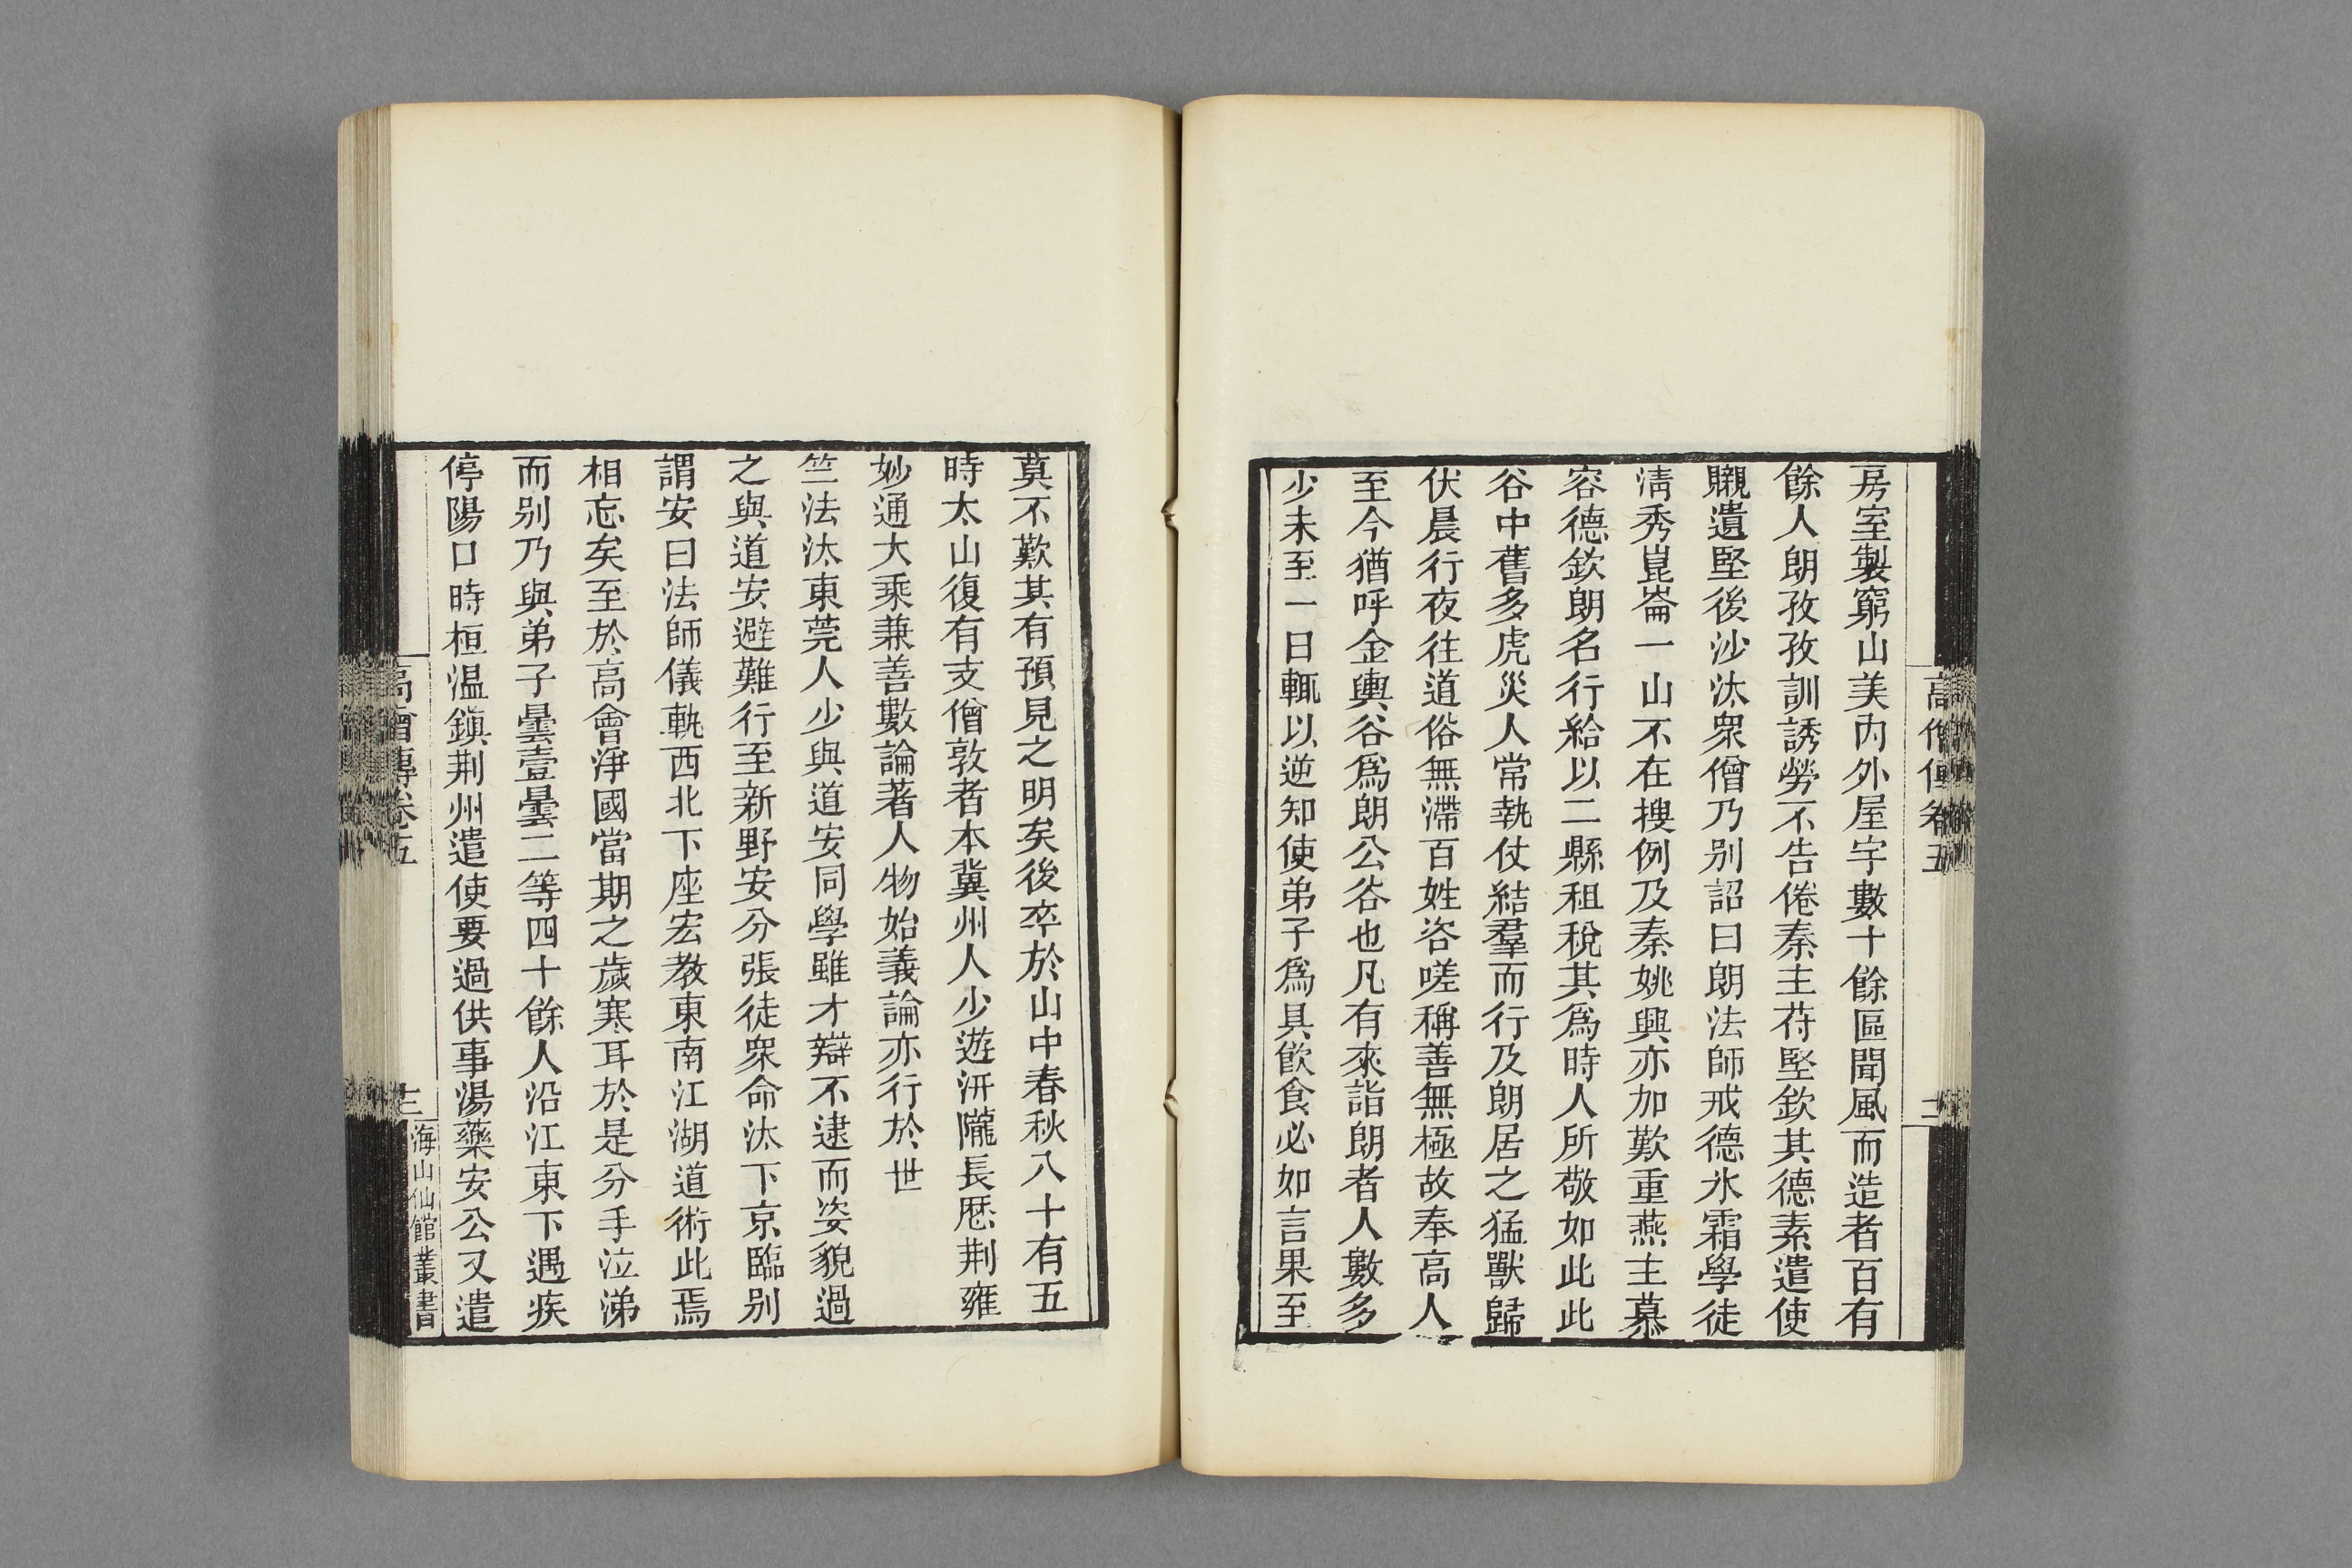 高僧傳卷五
二
房室製窮山美内外屋宇數十餘區聞風而造者百有
餘人朗孜孜訓誘勞不告倦秦主苻堅欽其德素遣使
䞋遺堅後沙汰衆僧乃别詔曰朗法師戒德氷霜學徒
清秀崑崙一山不在搜例及秦姚興亦加歎重燕主慕
容德欽朗名行給以二縣租稅其爲時人所敬如此此
谷中舊多虎災人常執仗結羣而行及朗居之猛獸歸
伏晨行夜往道俗無滯百姓咨嗟稱善無極故奉高人
至今猶呼金輿谷爲朗公谷也凡有來詣朗者人數多
少未至一日輒以逆知使弟子爲具飲食必如言果至
莫不歎其有預見之明矣後卒於山中春秋八十有五
時太山復有支僧敦者本冀州人少遊汧隴長歷荆雍
妙通大乘兼善數論著人物始義論亦行於世
竺法汰東莞人少與道安同學雖才辯不逮而姿貌過
之與道安避難行至新野安分張徒衆命汰下京臨别
謂安曰法師儀軌西北下座宏教東南江湖道術此焉
相忘矣至於高會淨國當期之歲寒耳於是分手泣涕
而别乃與弟子曇壹曇二等四十餘人沿江東下遇疾
停陽口時桓温鎮荆州遣使要過供事湯藥安公又遣
高僧傳卷五
海山仙館叢書